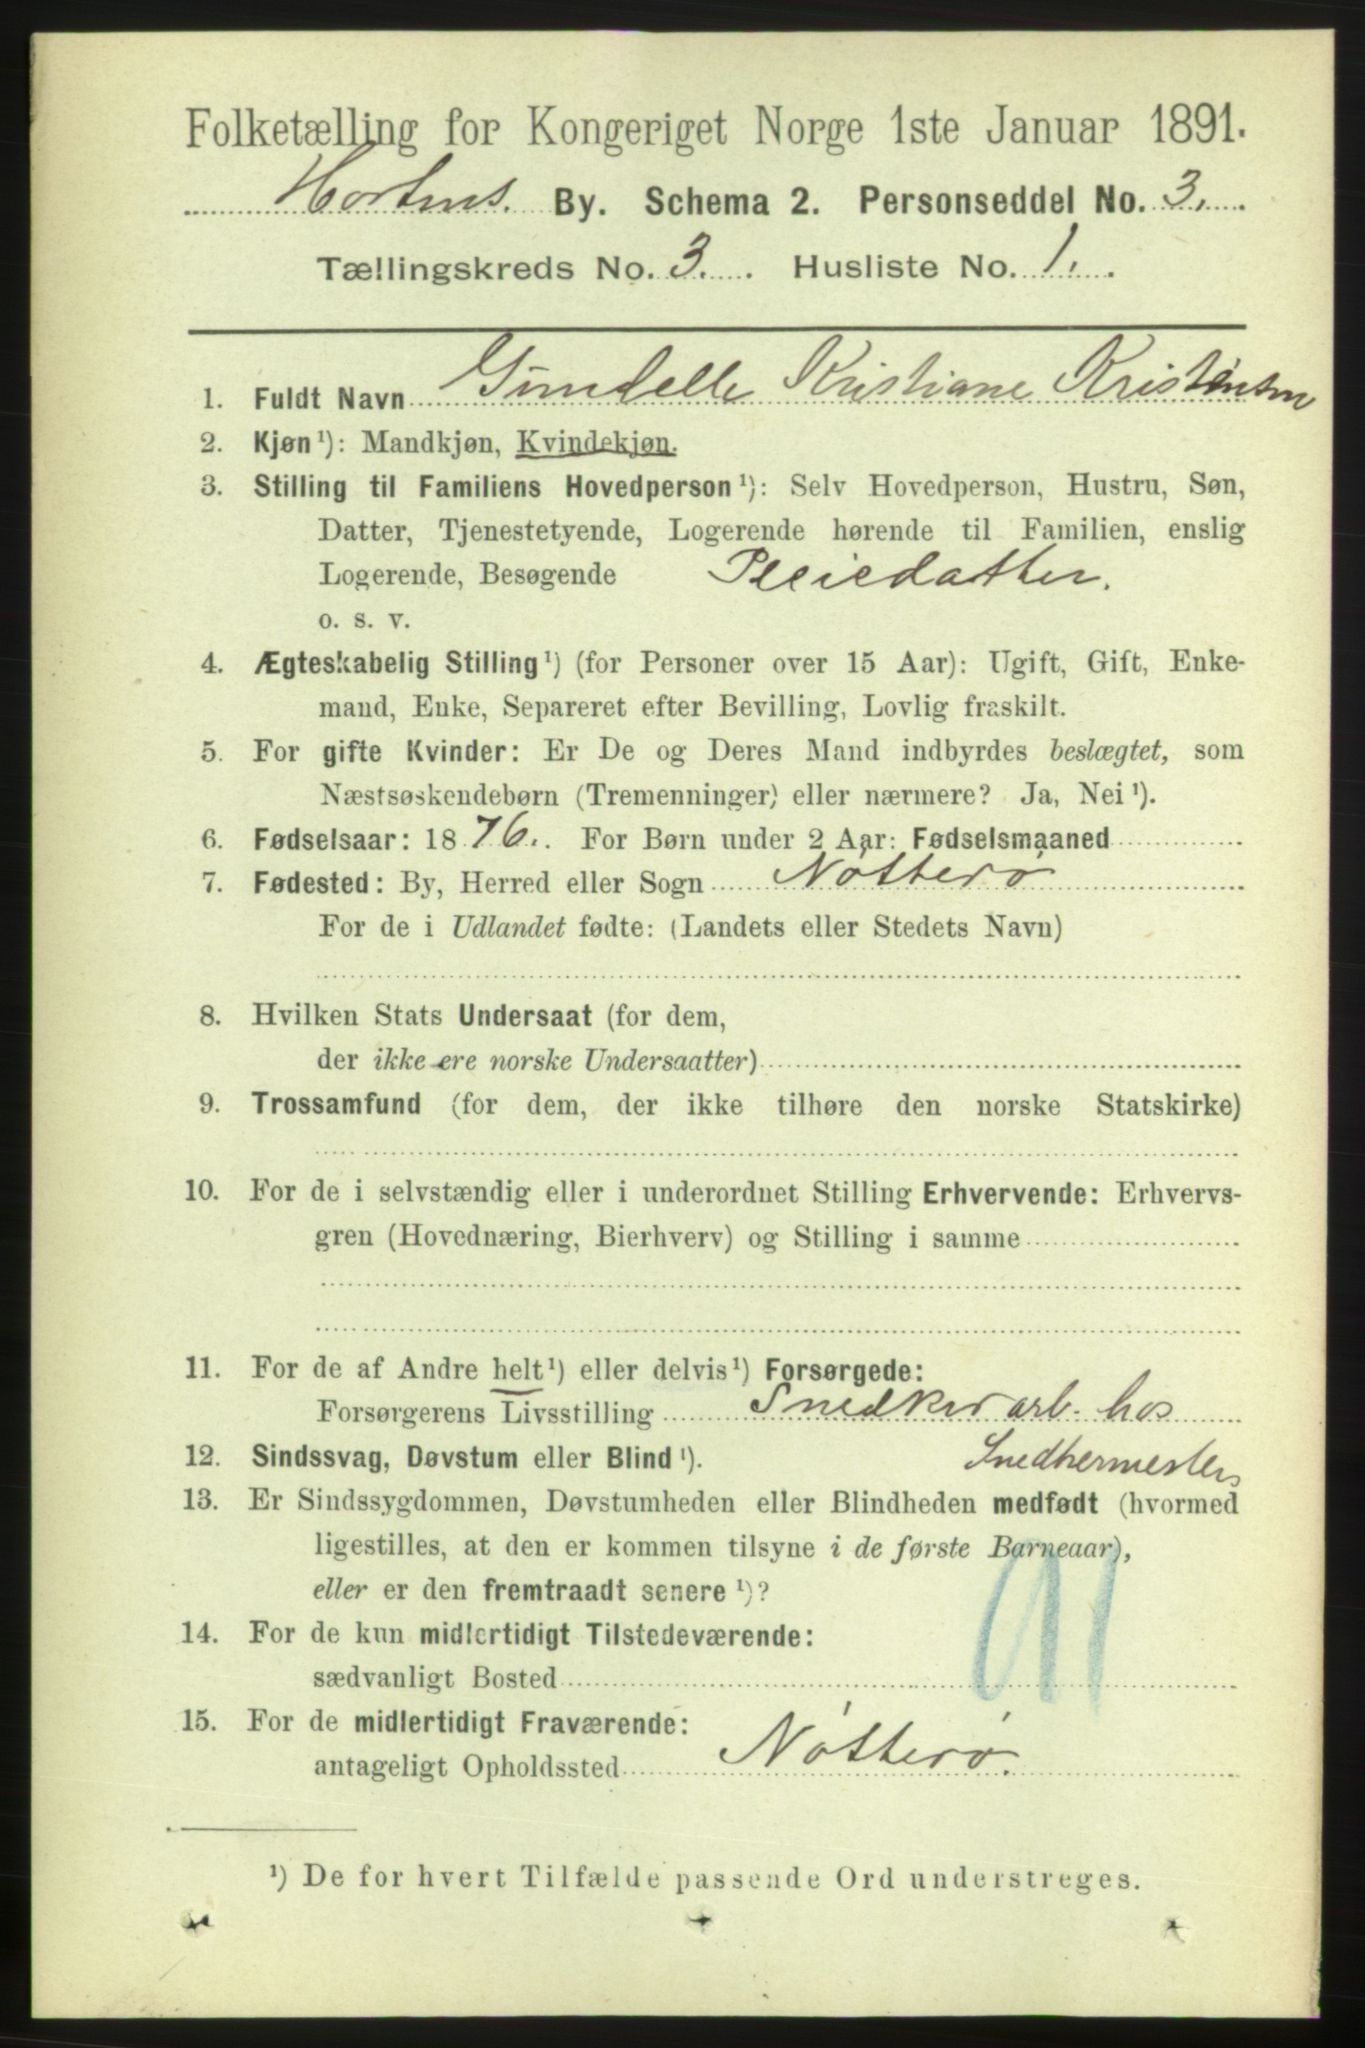 Folketælling for Kongeriget Norge 1ste Januar 1891.
Hortens. By. Schema 2. Personseddel No. 3.
Tællingskreds No. 3. Husliste No. 1.
1. Fuldt Navn Gundelle Kristiane Kristensen
2. Kjøn¹): Mandkjøn, Kvindekjøn.
3. Stilling til Familiens Hovedperson¹): Selv Hovedperson, Hustru, Søn,
Datter, Tjenestetyende, Logerende hørende til Familien, enslig
Logerende, Besøgende Pleiedatter.
o. s. v.
4. Ægteskabelig Stilling¹) (for Personer over 15 Aar): Ugift, Gift, Enke-
mand, Enke, Separeret efter Bevilling, Lovlig fraskilt.
5. For gifte Kvinder: Er De og Deres Mand indbyrdes beslægtet, som
Næstsøskendebørn (Tremenninger) eller nærmere? Ja, Nei¹).
6. Fødselsaar: 1876. For Børn under 2 Aar: Fødselsmaaned
7. Fødested: By, Herred eller Sogn Nøtterø
For de i Udlandet fødte: (Landets eller Stedets Navn)
8. Hvilken Stats Undersaat (for dem,
der ikke ere norske Undersaatter)
9. Trossamfund (for dem, der ikke tilhøre den norske Statskirke)
10. For de i selvstændig eller i underordnet Stilling Erhvervende: Erhvervs-
gren (Hovednæring, Bierhverv) og Stilling i samme
11. For de af Andre helt¹) eller delvis¹) Forsørgede:
Forsørgerens Livsstilling Snedkerarb. hos
12. Sindssvag, Døvstum eller Blind¹). Snedkermesters
13. Er Sindssygdommen, Døvstumheden eller Blindheden medfødt (hvormed
ligestilles, at den er kommen tilsyne i de første Barneaar),
eller er den fremtraadt senere¹)?
14. For de kun midlertidigt Tilstedeværende:
sædvanligt Bosted
91
15. For de midlertidigt Fraværende:
antageligt Opholdssted Nøtterø.
¹) De for hvert Tilfælde passende Ord understreges.